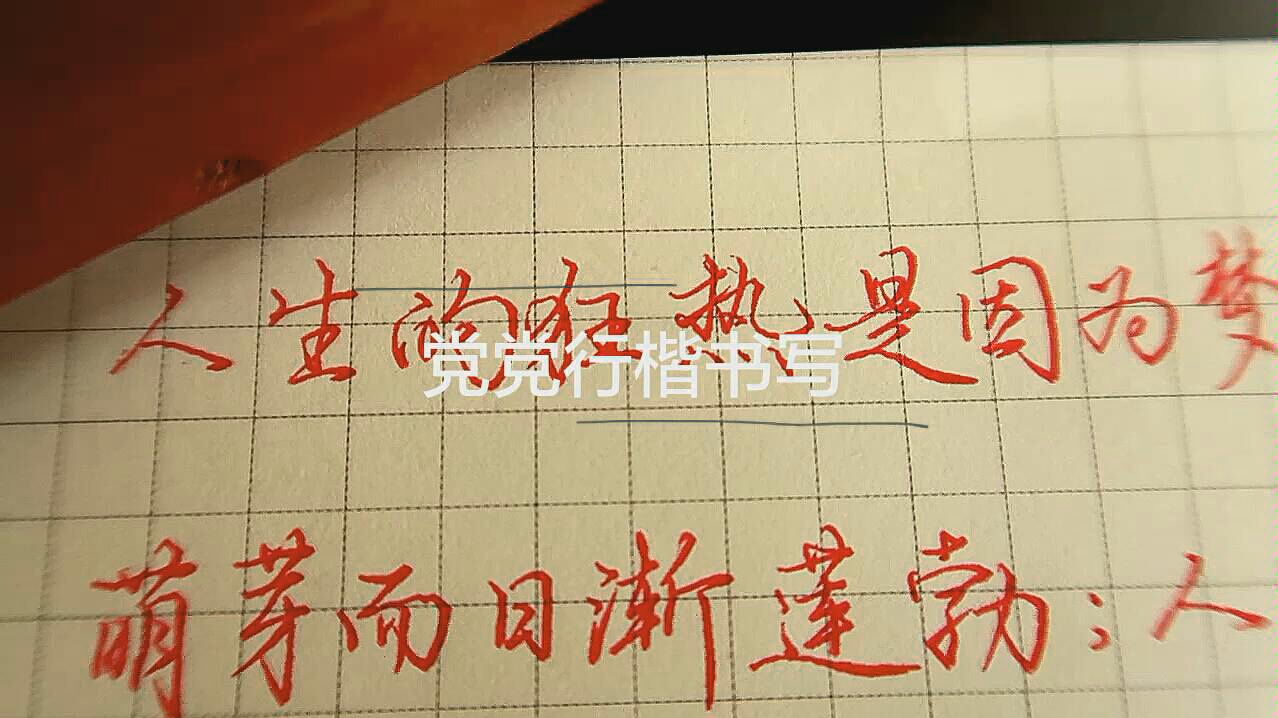 人生的狂热是因为梦
党党行楷书写
萌芽而日渐蓬勃；人